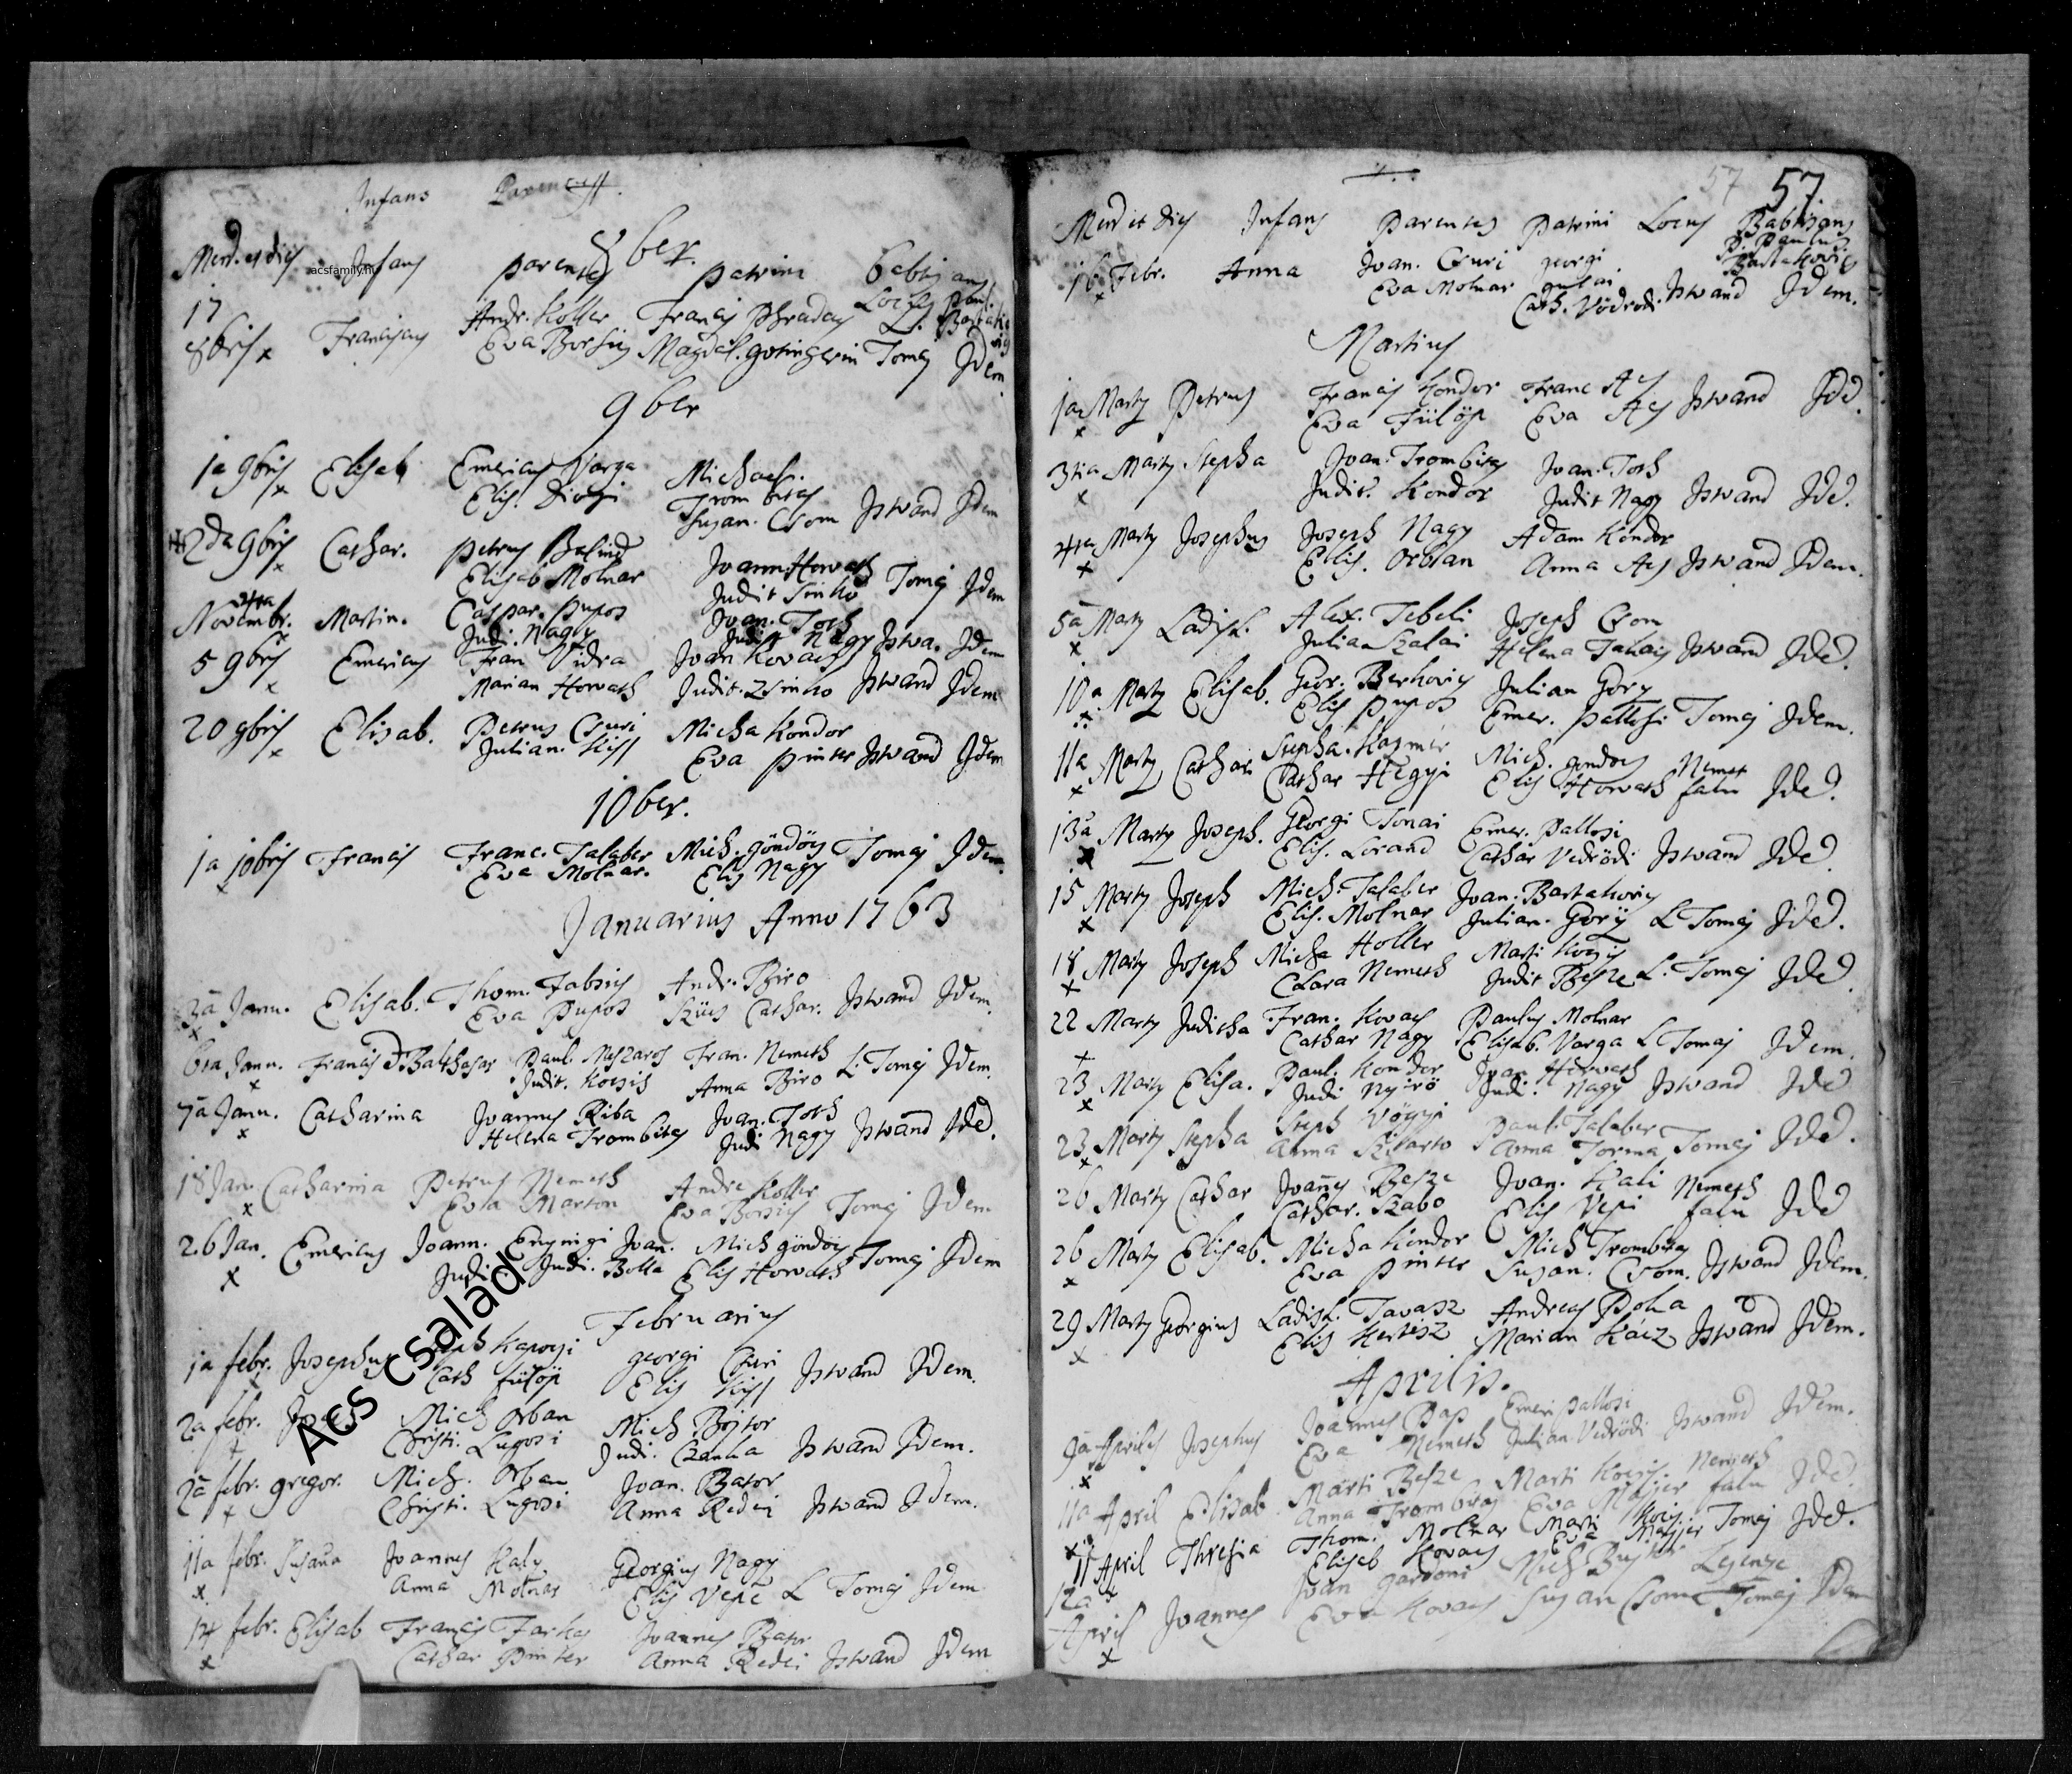 Infans Parentes
8ber.
Mens. et dies Infans parentes patrini Babtizans
Locus
17 8bris Franciscus Andr. Koller Francis
Eva Borsics Magdal. Tomaj Idem
9ber
1a 9bris Elisab Emericus Varga Michael
Elis. Diosgi Trombitas
Susan. Csom Istvand Idem
2da 9bris Cathar. Petrus Balind Joann Horvath
Elisab Molnar Judit Sinko Tomaj Idem
Novembr. Martin. Caspar. Pupos Joan. Toth
Judi. Nagy Judit Nagy Istva. Idem
5 9bris Emericus Fran Vidra Joan Kovacs
Marian Horvath Judit. Zsinko Istvand Idem
20 9bris Elisab. Petrus Csuri Micha Kondor
Julian. Kiss Eva pinter Istvand Idem
10ber.
1a 10bris Francis Franc. Talaber Mich. göndöcs Tomaj Idem.
Eva Molnar. Elis Nagy
Januarius Anno 1763
3a Jann. Elisab. Thom. Fabsics Andr. Biro
Eva Pupos Szücs Cathar. Istvand Idem.
6ta Jann. Francis & Balthasar Paul. Meszaros Fran. Nemeth L. Tomaj Idem.
Judit. Kocsis Anna Biro
7a Jann. Catharina Joannes Riba Joan. Toth
Helena Trombitas Judi Nagy Istvand Ide.
18 Jan. Catharina Petrus Nemeth Andre Koller
Eva Marton Eva Borsics Tomaj Idem
26 Jan. Emericus Joann. Joan. Mich göndöcs
Judi. Judi. Bolla Elis Horvath Tomaj Idem
Februarius
1a febr. Josephus Kaposi georgi Csuri
Cath fülöp Elis Kiss Istvand Idem.
2a febr. Mich Orban Mich Bojtor
Christi. Lugosi Judi. Czanka Istvand Idem.
2a febr. gregor. Mich. Orban Joan. Bator
Christi. Lugosi Anna Redei Istvand Idem.
11a febr. Susana Joannes Kaly Georgius Nagy
Anna Molnar Elis Vepe L Tomaj Idem
14 febr. Elisab Francis Farkas Joannes Bator
Cathar Pinter Anna Redei Istvand Idem
acsfamily.hu
Acs Család
57 57
Mens et dies Infans Parentes Patrini Locus Babtizans
P. Paulus
16 Febr. Anna Joan. Csuri georgi Bartakovics
Eva Molnar gulyai
Cath. Vödrödi Istvand Idem.
Martius
1a Marty Petrus Francis Kondor Franc Acs
Eva Fülöp Eva Acs Istvand Ide.
3tia Marty Stepha Joan. Trombitas Joan. Toth
Judit. Kondor Judit Nagy Istvand Ide.
4ta Marty Josephus Joseph Nagy Adam Kondor
Elis. Orban Anna Acs Istvand Idem.
5a Marty Ladisl. Alex. Tebeli Joseph Csom
Julian Szalai Helena Takacs Istvand Ide.
10a Marty Elisab. Geor. Berkovics Julian Gory
Elis pupos Emer. pallosi Tomaj Idem.
11a Marty Cathar. Stepha. Kazmer Mich. göndöcs Nemet
Cathar Hegyi Elis Horvath falu Ide.
13a Marty Joseph. Georgi Tonai Emer. Pallosi
Elis. Lorand Cathar Vedrödi Istvand Ide.
15 Marty Joseph Mich. Talaber Joan. Bartakovics
Elis. Molnar Julian. Gory L Tomaj Ide.
18 Marty Joseph Micha Holler Marti Kocsis
Clara Nemeth Judit Besze L. Tomaj Ide.
22 Marty Juditha Fran. Kovacs Paulus Molnar
Cathar Nagy Elisab. Varga L Tomaj Idem.
23 Marty Elisa. Paul. Kondor Joan Horvath
Judi Nyirö Judi. Nagy Istvand Ide
23 Marty Stepha Steph Vögyi Paul. Talaber
Anna Szitarto Anna Torma Tomaj Ide.
26 Marty Cathar Joannes Besze Joan. Kali Nemeth
Cathar. Szabo Elis Vepi falu Ide
26 Marty Elisab. Micha Kondor Mich Trombitas
Eva pinter Susan. Csom. Istvand Idem.
29 Marty Georgius Ladisl. Tavasz Andreas Poka
Elis Kertész Marian Rácz Istvand Idem.
Aprilis.
9a Aprilis Josephus Joannes Pap Emeri pallosi
Eva Nemeth Julian. Vedrödi Istvand Idem.
11a April Elisab Marti Besze Marti Kocsis Nemeth
Anna Trombitas Eva Majjer falu Ide.
11 April Thresia Thom. Molnar Marti Kocsis
Elisab Kovacs Eva Majjer Tomaj Ide.
12a April Joannes Joan gardoni Mich Lesencze
Eva Kovacs Susan Csom Tomaj Idem